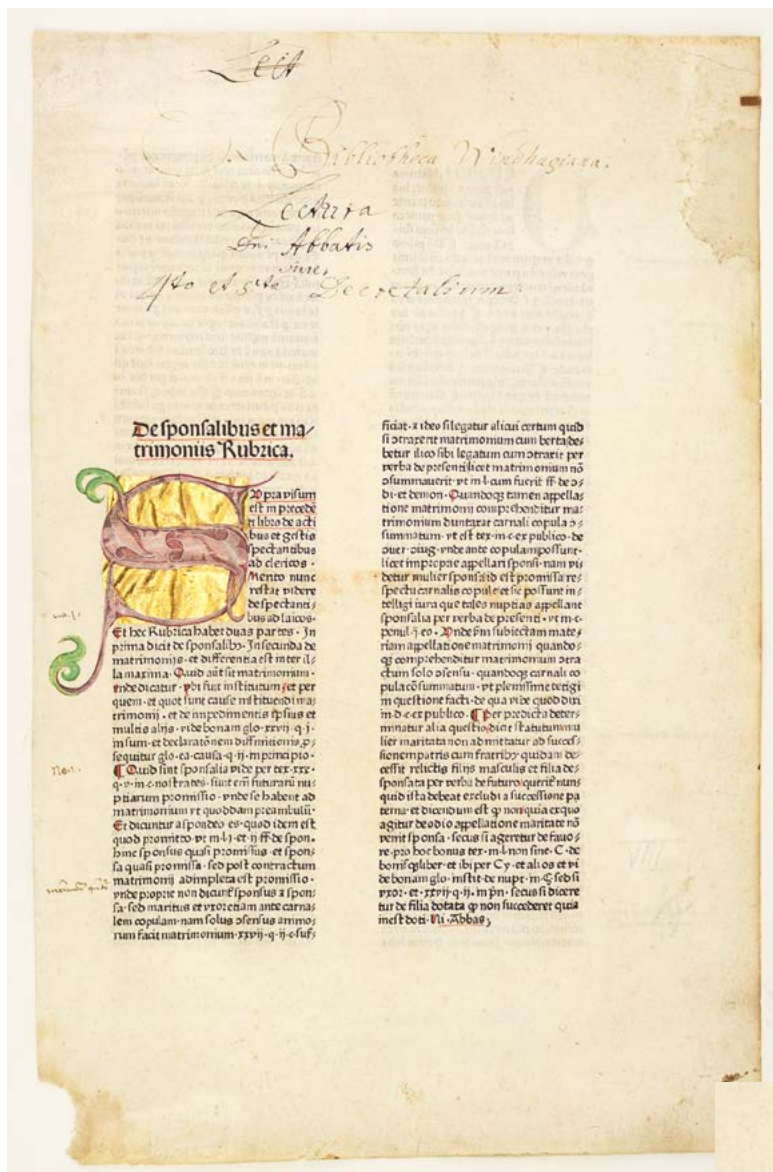 Lect
Ex Bibliotheca Windhagiana.
Lectura
Dni Abbatis
4to et 5to Decretalium.
De sponsalibus et ma⸗
trimoniis Rubrica.
SVpra visum
est in precedē
ti libro de acti
bus et gestis
spectantibus
ad clericos·
Merito nunc
restat videre
de spectanti⸗
bus ad laicos·
Et hec Rubrica habet duas partes· In
prima dicit de sponsalibꝰ· In secunda de
matrimonijs· et differentia est inter il⸗
la maxima· Quid aūt sit matrimonium·
vnde dicatur· vbi fuit institutum et per
quem· et quot sunt cause instituendi ma⸗
trimonij· et de impedimentis ipsius et
multis alijs· vide bonam glo·xxvij·q·j·
in sum·et declaratōnem diffinitionis ꝓ⸗
sequitur glo·ea·causa·q·ij·in principio·
¶ Quid sint sponsalia vide per tex·xxx·
q·v·in·c·nostrates· sunt em̄ futuraꝝ nu⸗
ptiarum promissio· vnde se habent ad
matrimonium vt quoddam preambulū·
Et dicuntur a spondeo es·quod idem est
quod promitto·vt in·l·j·et·ij·ff·de spon·
hinc sponsus quasi promissus·et spon⸗
sa quasi promissa· sed post contractum
matrimonij adimpleta est promissio·
vnde proprie non dicunt sponsus ⁊ spon⸗
sa· sed maritus et vxor etiam ante carna⸗
lem copulam·nam solus ↄsensus animo⸗
rum facit matrimonium·xxvij·q·ij·c·suf⸗
ficiat·⁊ ideo si legatur alicui certum quid
si ↄtraxerit matrimonium cum berta de⸗
betur ilico sibi legatum cum ↄtraxit per
verba de presenti licet matrimonium nō
ↄsummauerit·vt in·l·cum fuerit·ff·de ↄ⸗
di·et demon· Quandoqꝫ tamen appella⸗
tione matrimonij comprehenditur ma⸗
trimonium duntaxat carnali copula ↄ⸗
summatum·vt est tex·in·c·ex publico·de
ↄuer·ↄiug·vnde ante copulam possunt
licet improprie appellari sponsi·nam vi⸗
detur mulier sponsa id est promissa re⸗
spectu carnalis copule·et sic possunt in⸗
telligi iura que tales nuptias appellant
sponsalia per verba de presenti·vt in·c·
penul·ꝫ·eo· Vnde ẜm subiectam mate⸗
riam appellatione matrimonij quando⸗
qꝫ comprehenditur matrimonium ↄtra
ctum solo ↄsensu·quandoqꝫ carnali co
pula cōsummatum·vt plenissime tetigi
in questione facti·de qua vide quod dixi
in·d·c·ex publico· ¶ Per predicta deter⸗
minatur alia questio· dicit statutum mu
lier maritata non admittatur ad successi⸗
onem patris cum fratribꝰ· quidam de⸗
cessit relictis filijs masculis et filia de⸗
sponsata per verba de futuro·querit nun⸗
quid ista debeat excludi a successione pa
terna·et dicendum est ꝙ non·quia ex quo
agitur de odio appellatione maritate nō
venit sponsa· secus si ageretur de fauo⸗
re·pro hoc bonus tex·in·l·non sine·C·de
bonis q̄ liber·et ibi per Cy·et alios·et vi
de bonam glo·instit·de nupt·in·C·sed si
vxor·et·xxvij·q·ij·in pͥn·secus si dicere
tur de filia dotata ꝙ non succederet quia
inest doti· Ni·Abbas;